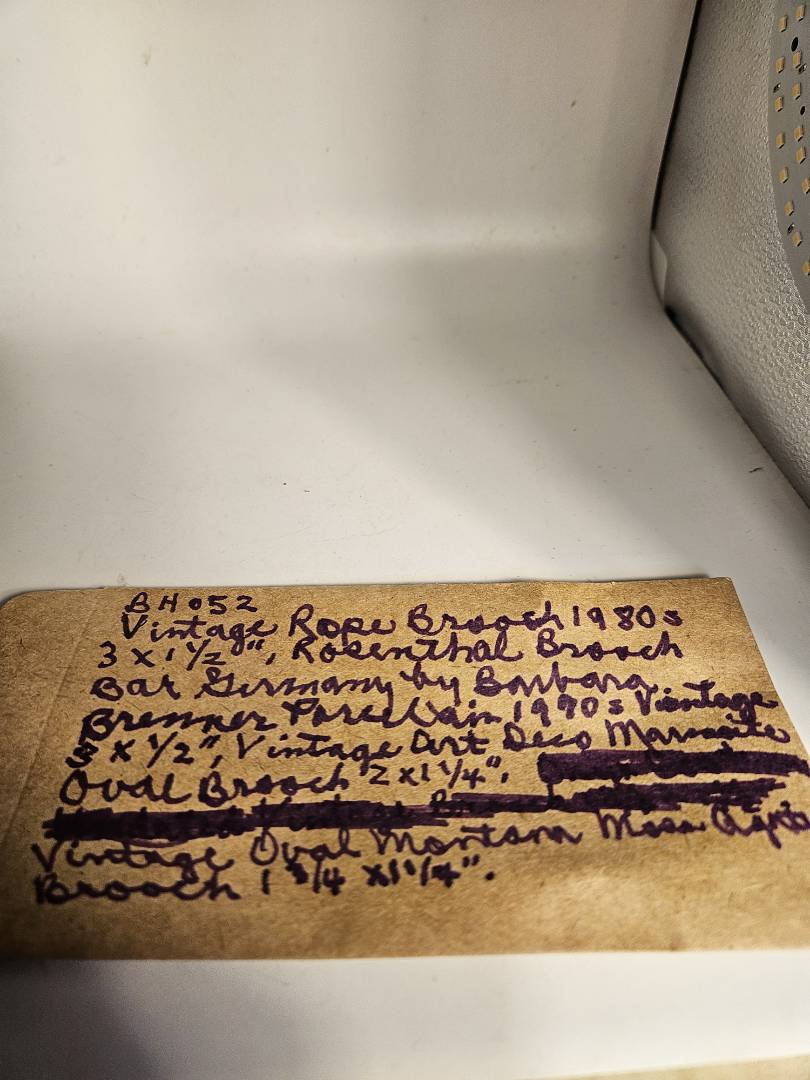 BH052
Vintage Rope Brooch 1980s
3 x 1 1/2", Rosenthal Brooch
Bar Germany by Barbara
Brenner Porcelain 1990s Vintage
3 x 1/2", Vintage Art Deco
Oval Brooch 2 x 1 1/4".
Vintage Oval Montana Moss Agate
Brooch 1 3/4 x 1 1/4".